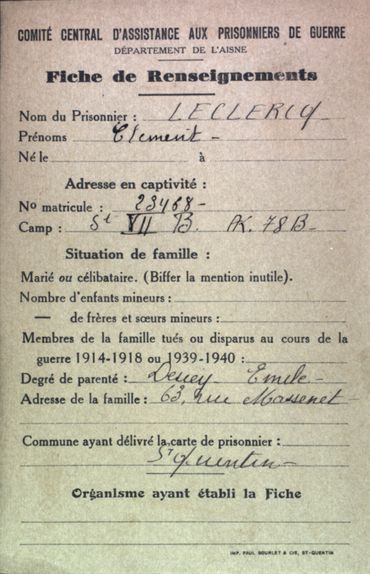 COMITÉ CENTRAL D'ASSISTANCE AUX PRISONNIERS DE GUERRE
DÉPARTEMENT DE L'AISNE
Fiche de Renseignements
Nom du Prisonnier : LECLERCQ
Prénoms Clement -
Né le à
Adresse en captivité :
No matricule : 23468 -
Camp : St VII B. AK. 78 B -
Situation de famille :
Marié ou célibataire. (Biffer la mention inutile).
Nombre d'enfants mineurs :
— de frères et sœurs mineurs :
Membres de la famille tués ou disparus au cours de la
guerre 1914-1918 ou 1939-1940 :
Degré de parenté : Emile -
Adresse de la famille : 63, rue Massenet -
Commune ayant délivré la carte de prisonnier :
St Quentin -
Organisme ayant établi la Fiche
IMP. PAUL BOURLET & CIE, ST-QUENTIN